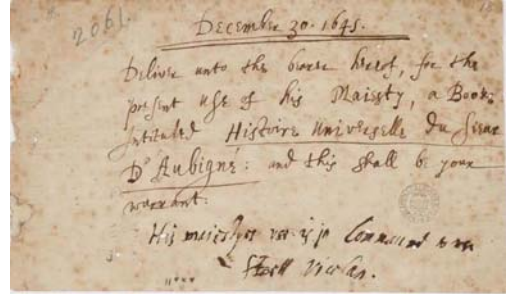 2061.
December 30. 1645.
Deliver unto the bearer hereof, for the
present use of his Maiesty, a Booke
intituled Histoire Universelle du Sieur
D'Aubigné: and this shall be your
warrant:
His command
Nicolas.